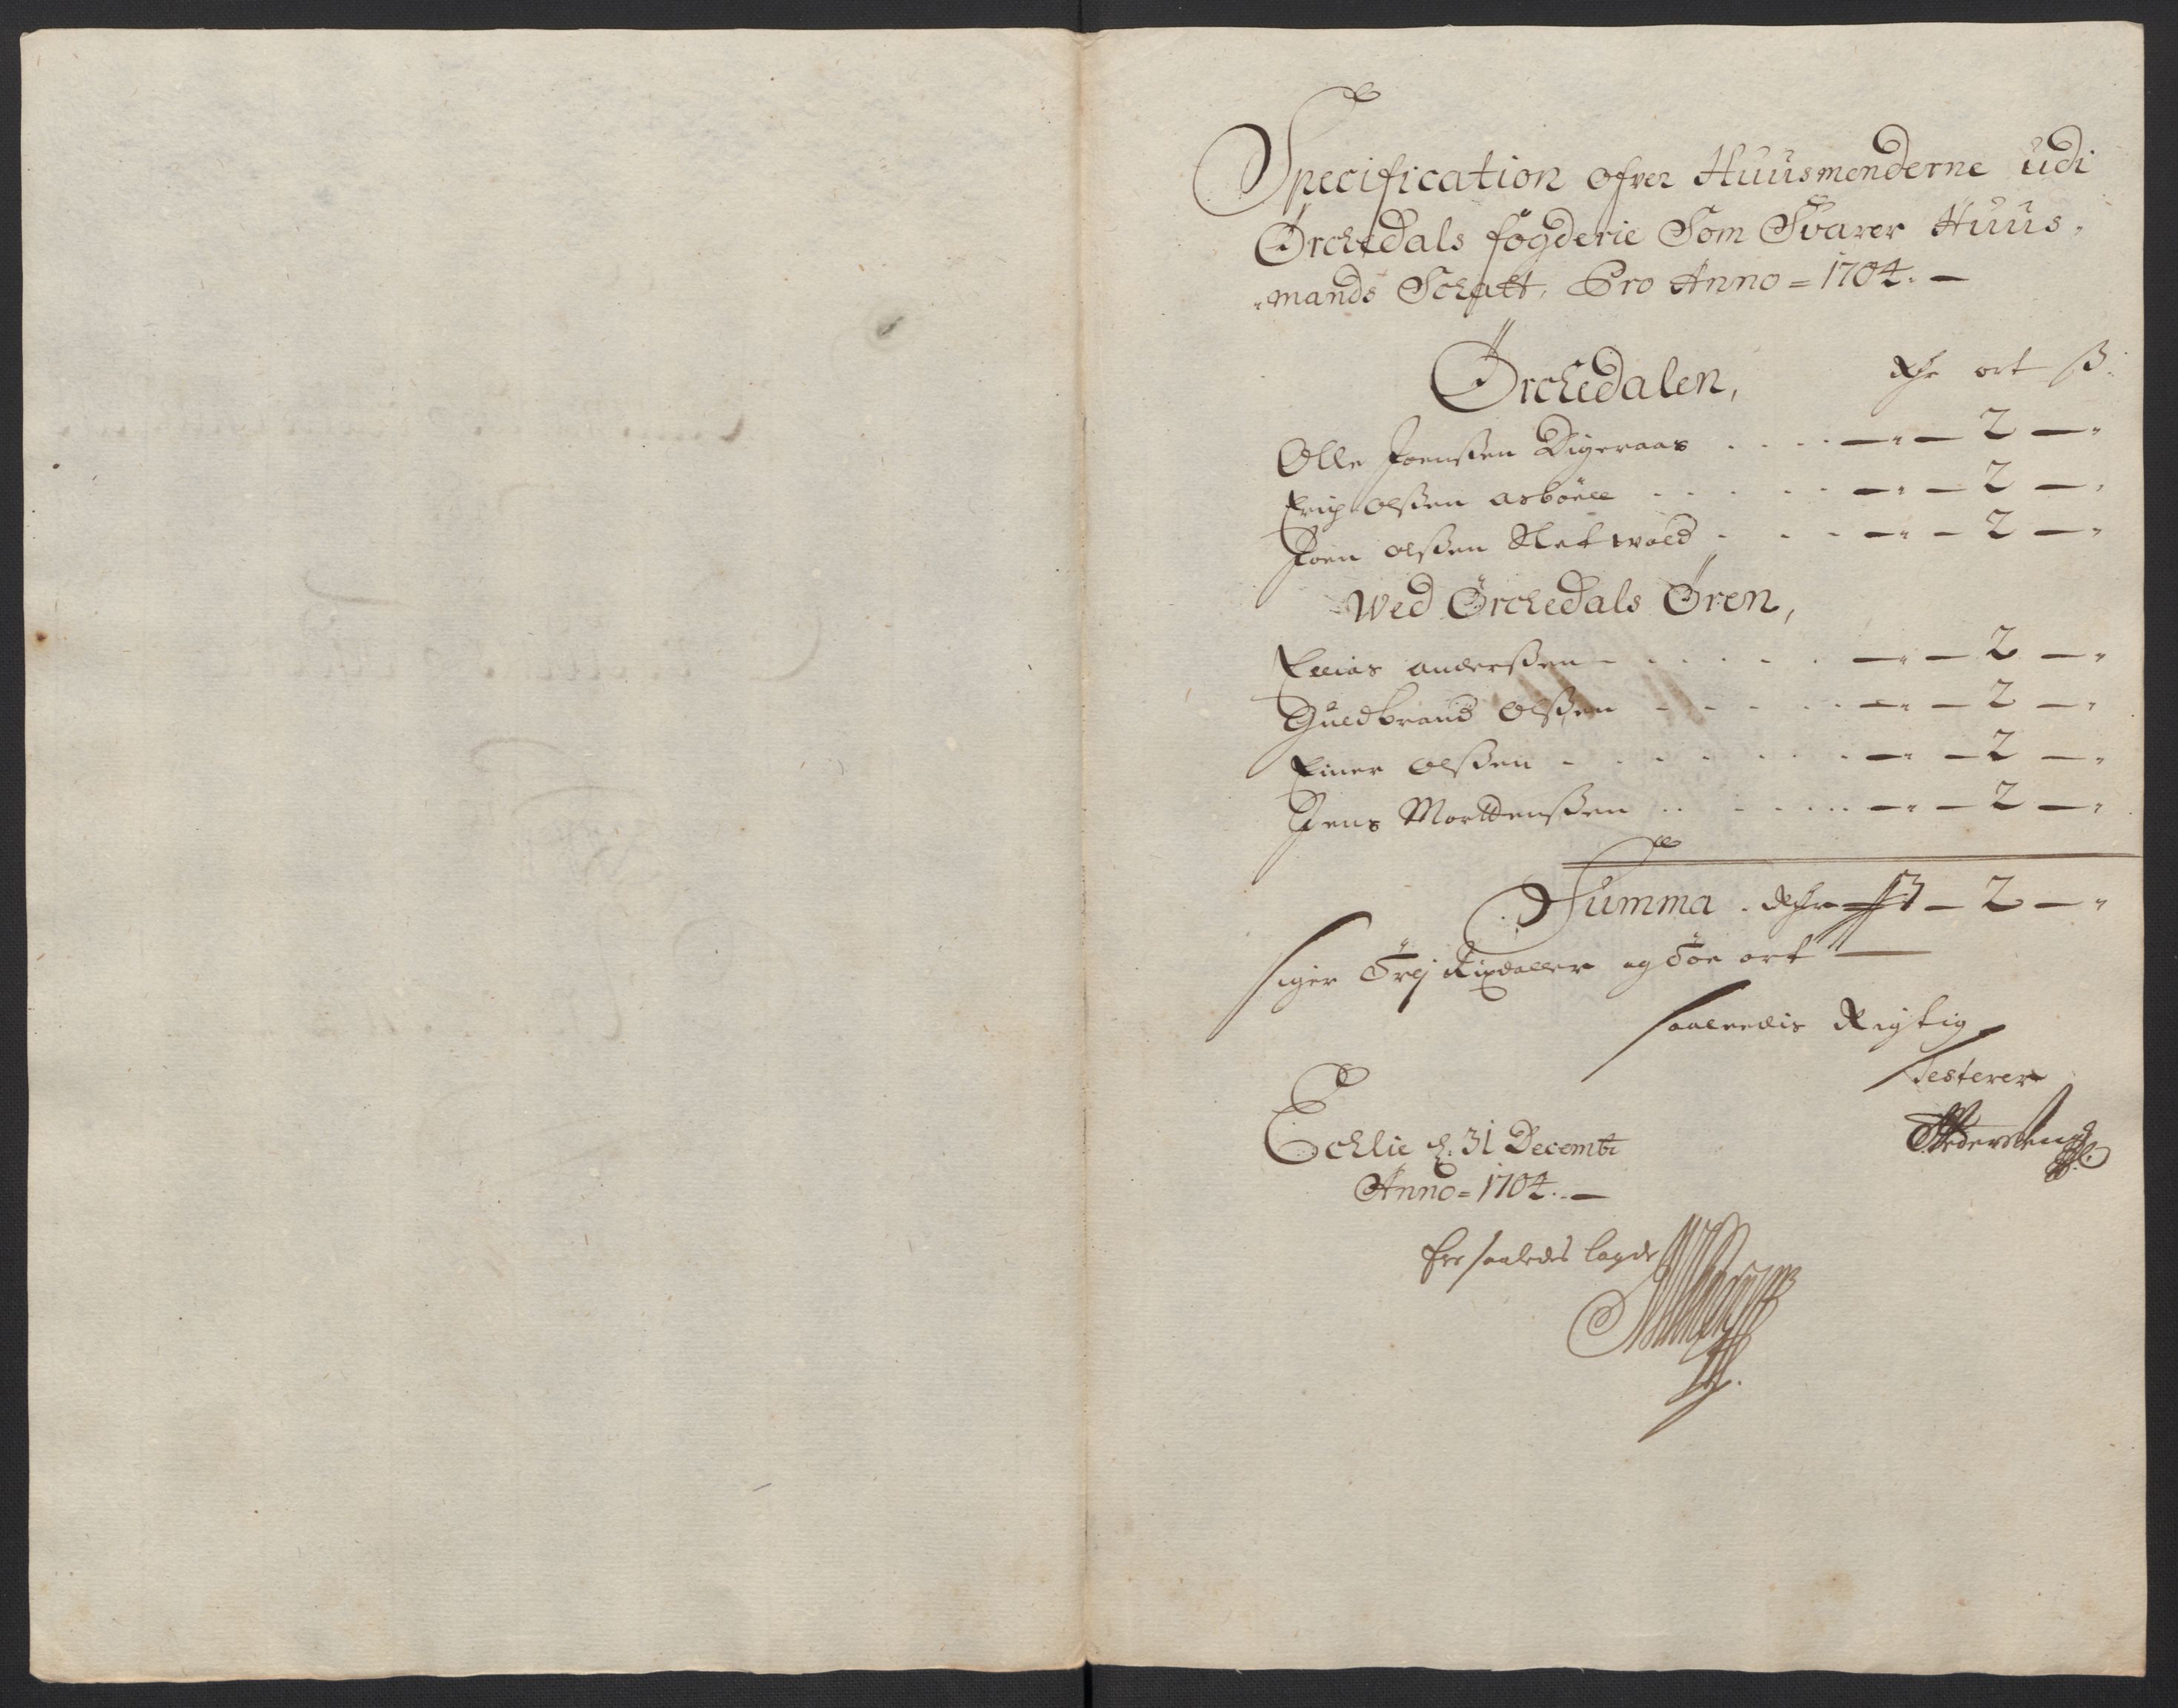 Specification ofver Huusmenderne udi
Örchedals fogderie Som Svarer Huus,
"mands Schatt, Pro Anno = 1704. —
Örchedalen, Rdr ort ß.
Olle Joenßen Digeraas . . . . — " — 2 — "
Erich Olßen Asböell . . . . . — " — 2 — "
Joen Olßen Sletwold . . . — " — 2 — "
Wed Örchedals Ören,
Ellias Anderßen . . . . . . — " — 2 — "
Guldbrand Olßen . . . . . — " — 2 — "
Einer Olßen . . . . . . . — " — 2 — "
Jens Morttenßen . . . . . . — " — 2 — "
Summa . Rdr 3 — 2 — "
siger Trej Rixdaller og Toe ort —
saaledis Rigtig
Testerer
Echlie d. 31 Decembr
Anno = 1704. —
Er saaledes lagde